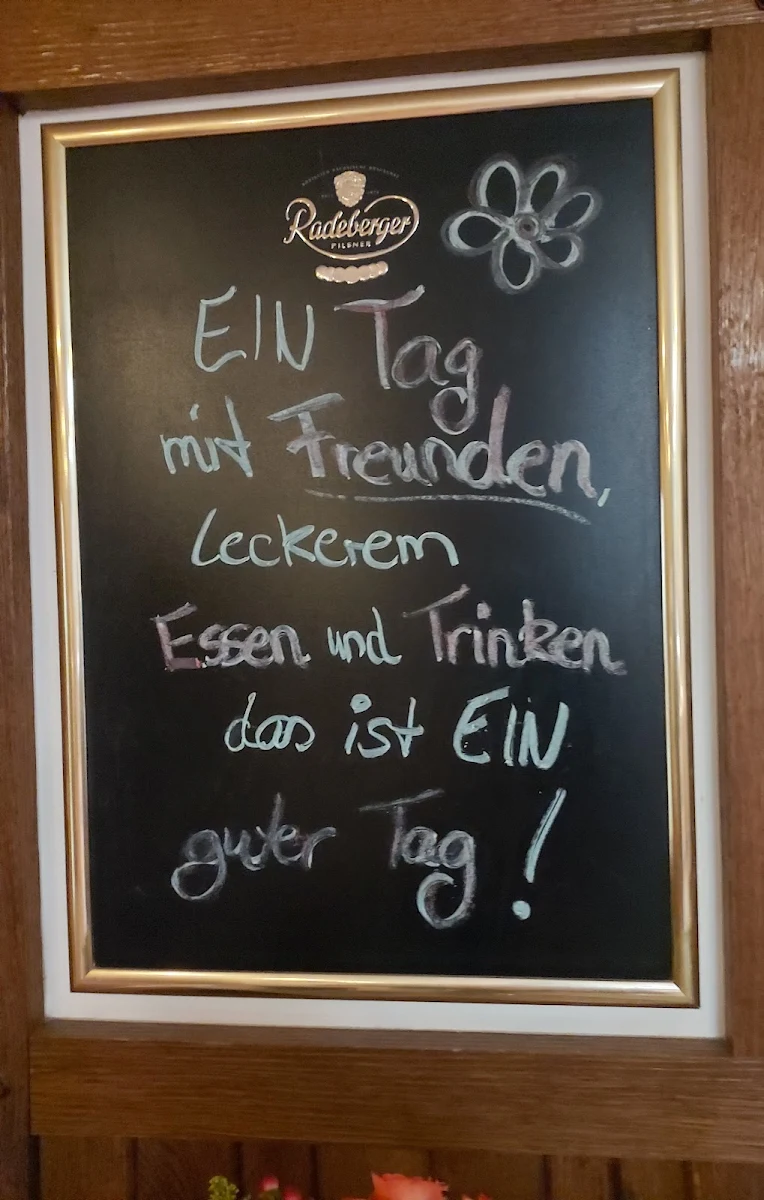 Radeberger
PILSNER
EIN Tag
mit Freunden,
leckerem
Essen und Trinken
das ist EIN
guter Tag !